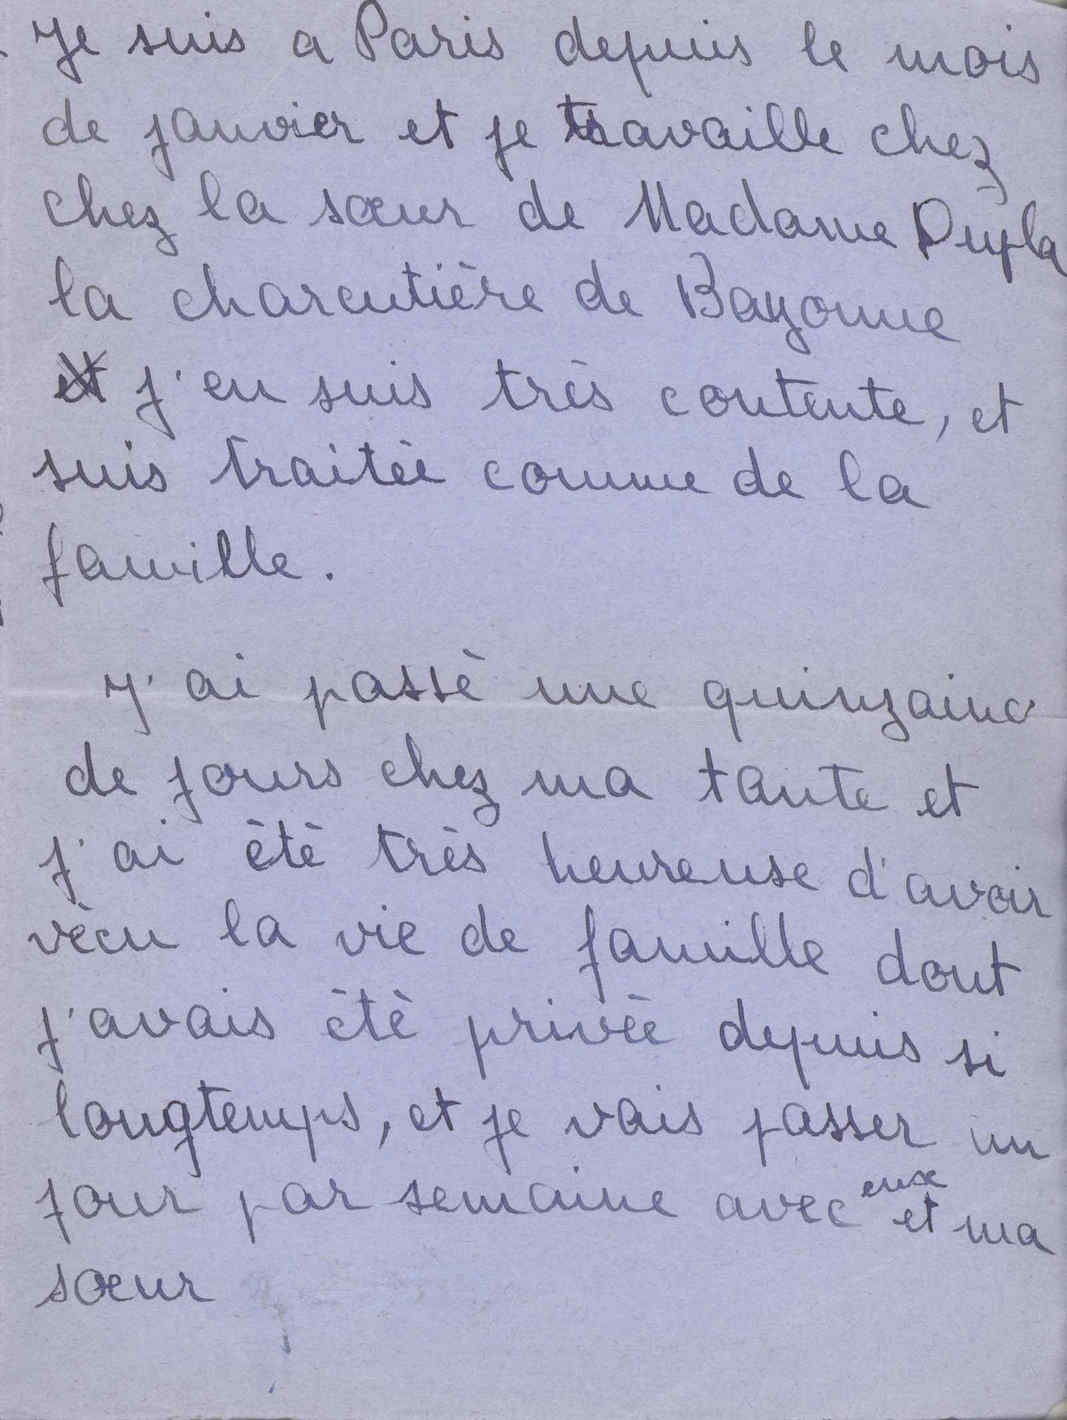 Je suis a Paris depuis le mois
de janvier et je travaille chez
chez la sœur de Madame Dupla
la charcutière de Bayonne
et j'en suis très contente, et
suis traitée comme de la
famille.
J'ai passé une quinzaine
de jours chez ma tante et
j'ai été très heureuse d'avoir
vécu la vie de famille dont
j'avais été privée depuis si
longtemps, et je vais passer un
jour par semaine avec eux et ma
sœur